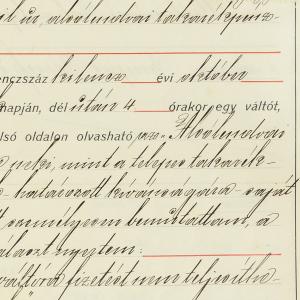 úr, alsólendvai takarékpénz-
enczszáz kilencz évi október
napján, dél után 4 órakor egy váltót,
lső oldalon olvasható "Alsólendvai
neki, mint a telepes takarék-
határozott kívánságára saját
személyesen bemutattam, a
választ nyertem:
fizetést nem teljesíthe-